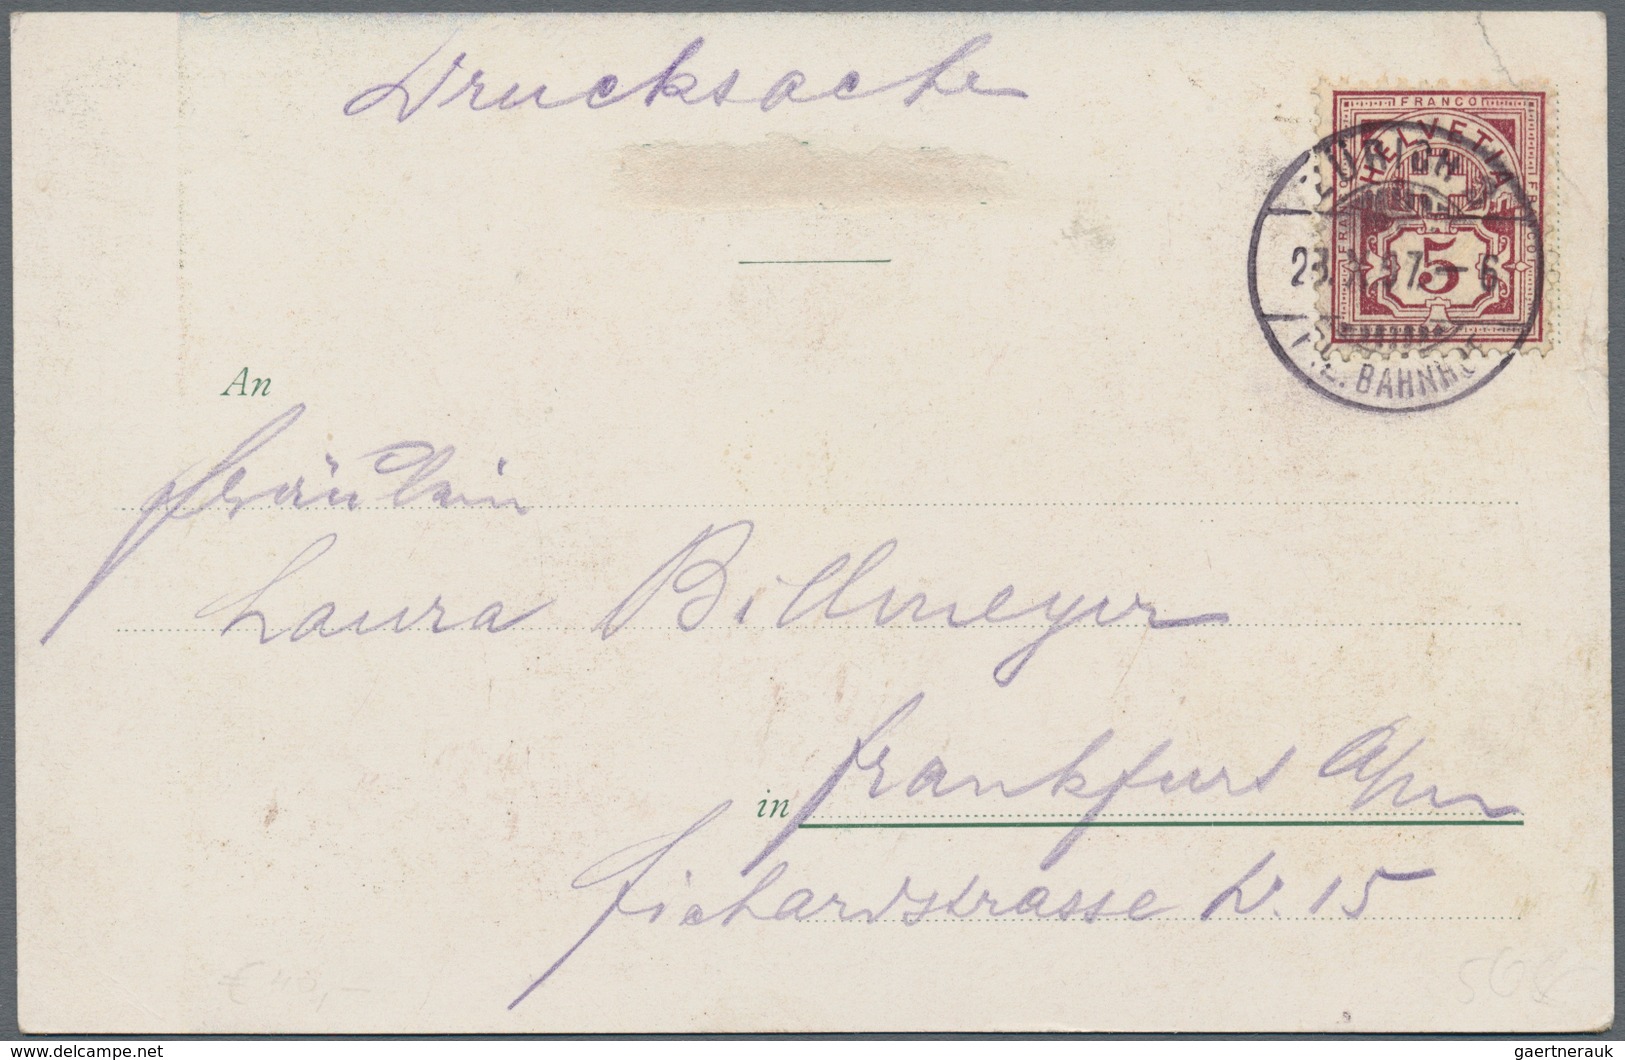 Drucksache
FRANCO
HELVETIA
ZÜRICH
5
23.X.97.–6
BAHNHOF
An
Fräulein
Laura Billmeyer
in Frankfurt a/m
Fichardstrasse N. 15
€ 40,-
delcampe.net
gaertnerauk